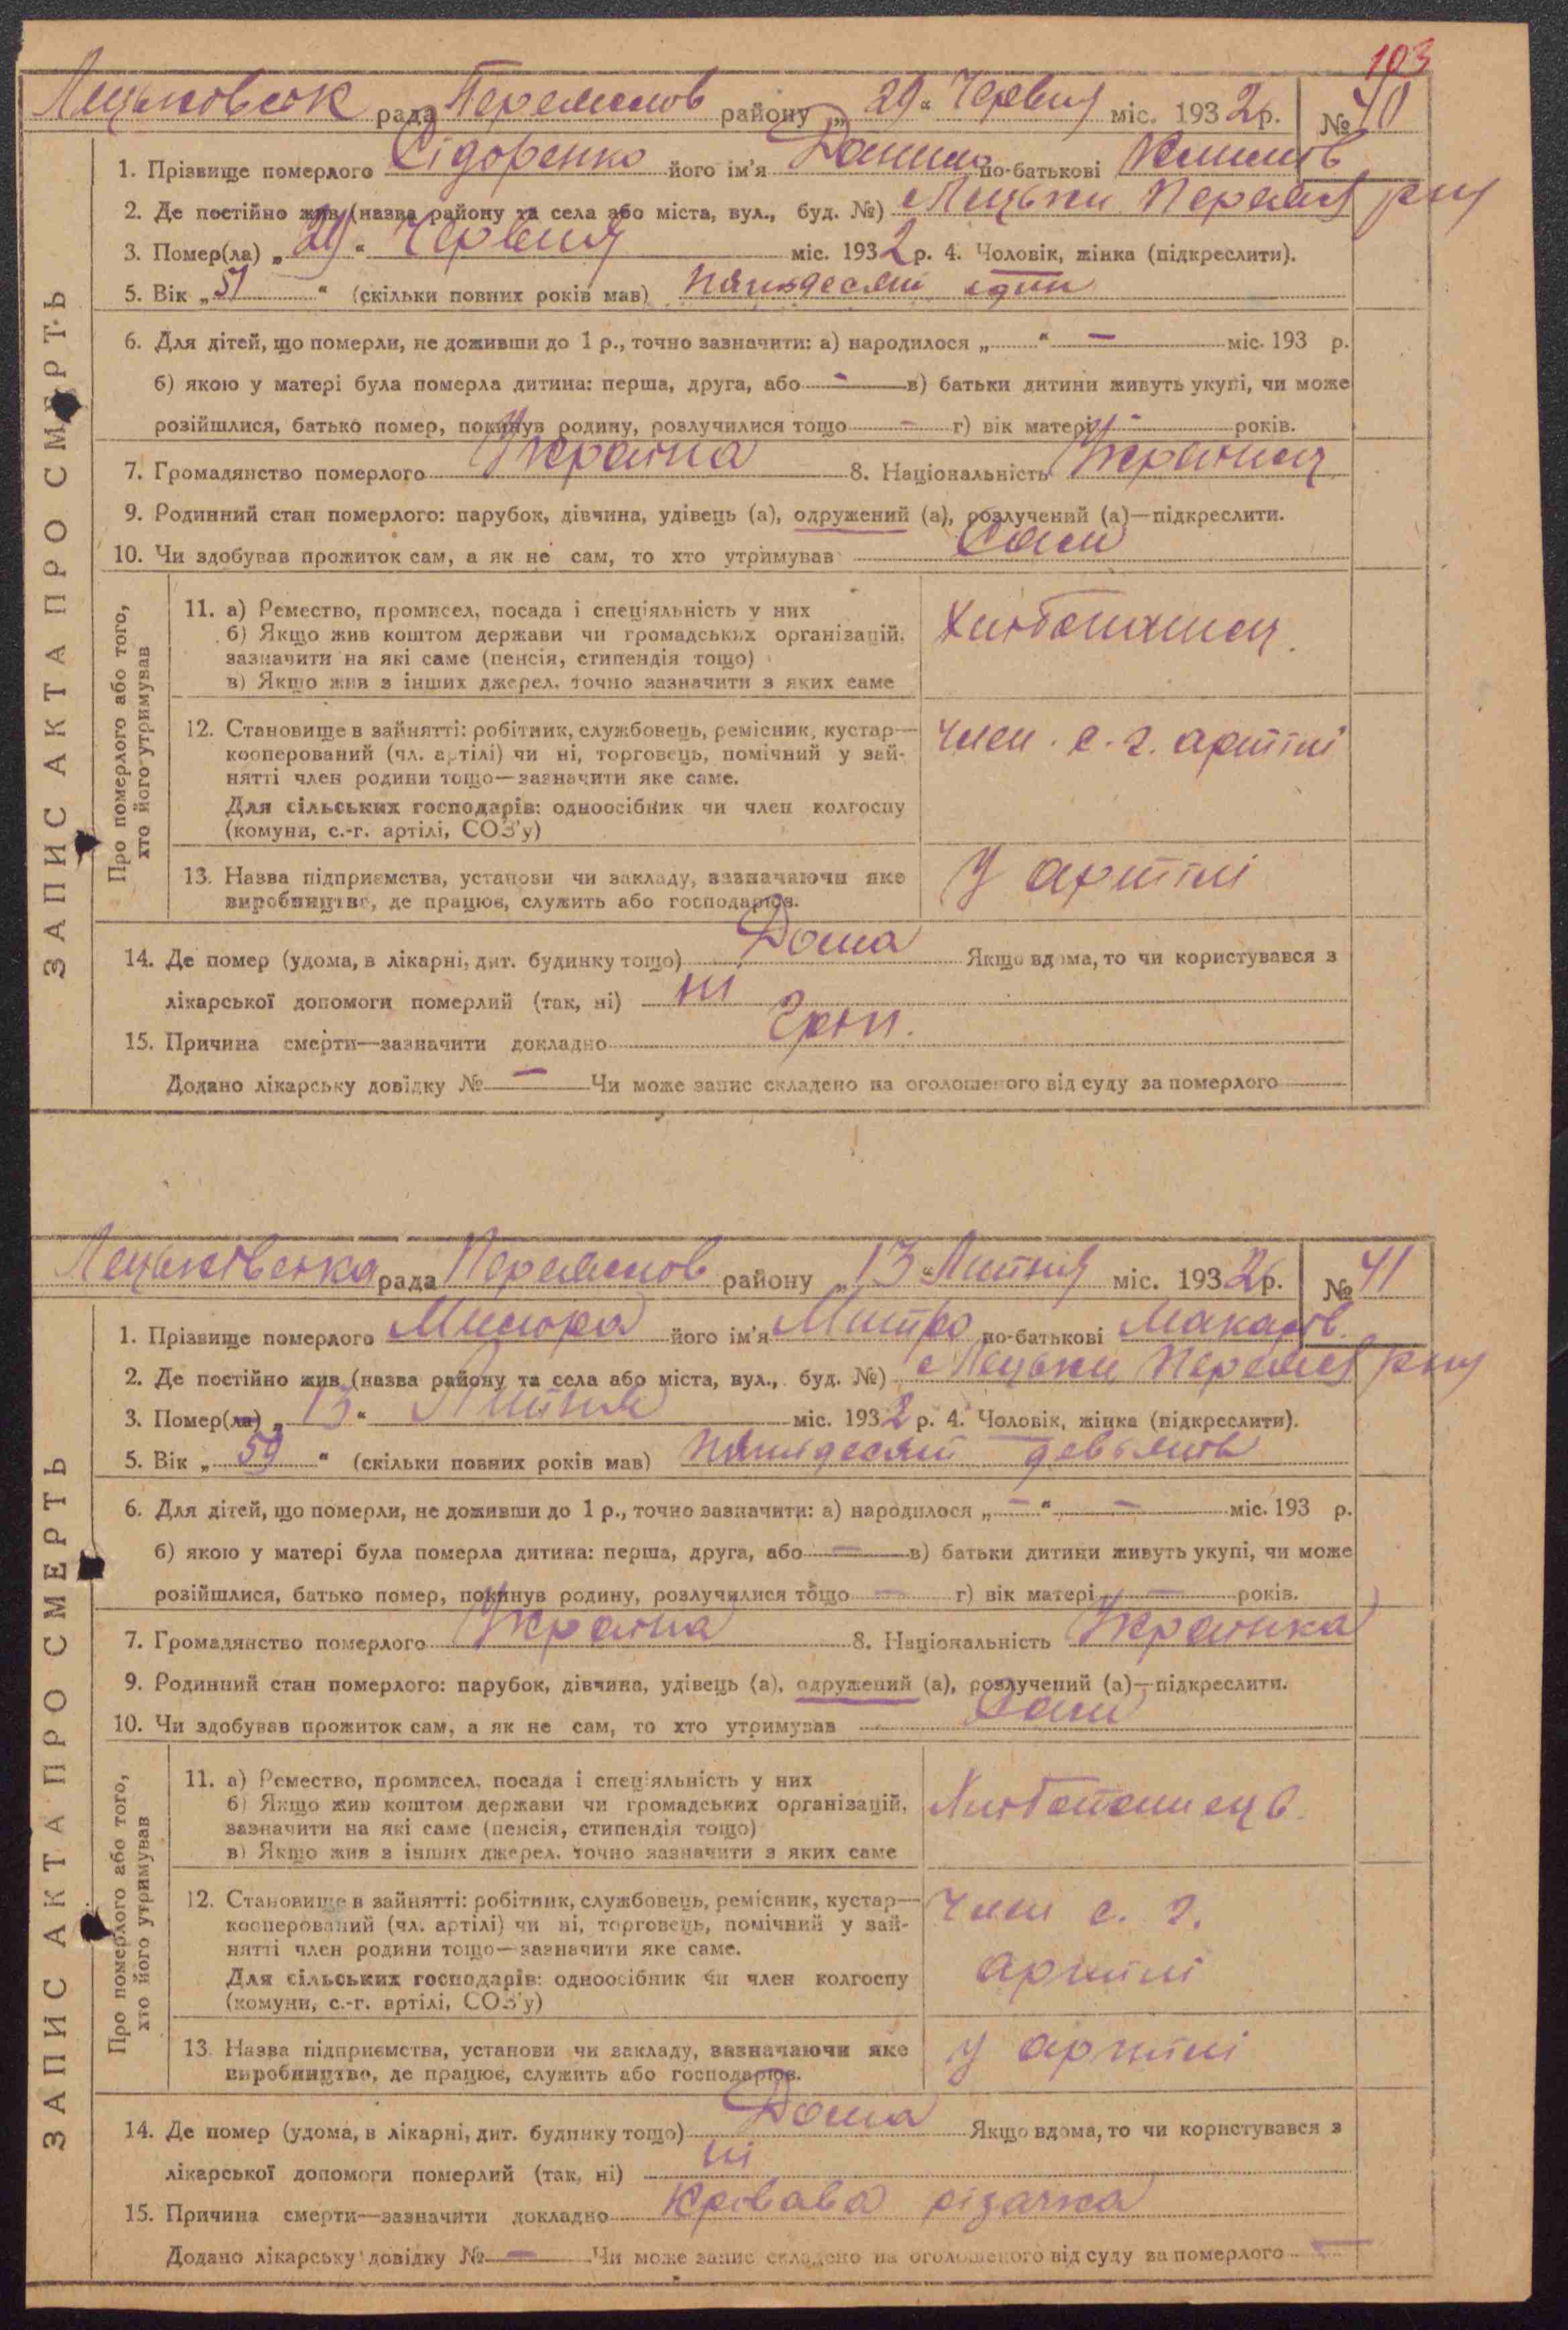 103
Лецьковськ рада Переяслов району „29“ Червня міс. 1932 р. № 40
ЗАПИС АКТА ПРО СМЕРТЬ
1. Прізвище померлого Сідоренко його ім'я Данило по-батькові Климов
2. Де постійно жив (назва району та села або міста, вул., буд. №) Лецьки Переясл рну
3. Помер(ла) „29“ Червня міс. 1932 р. 4. Чоловік, жінка (підкреслити).
5. Вік „51“ (скільки повних років мав) пятьдесят один
6. Для дітей, що померли, не доживши до 1 р., точно зазначити: а) народилося „ “ — міс. 193 р.
б) якою у матері була померла дитина: перша, друга, або - в) батьки дитини живуть укупі, чи може
розійшлися, батько помер, покинув родину, розлучилися тощо - г) вік матері - років.
7. Громадянство померлого Украіна 8. Національність Украинец
9. Родинний стан померлого: парубок, дівчина, удівець (а), одружений (а), розлучений (а)—підкреслити.
10. Чи здобував прожиток сам, а як не сам, то хто утримував Сам
Про померлого або того, хто його утримував
11. а) Ремество, промисел, посада і спеціяльність у них
б) Якщо жив коштом держави чи громадських організацій,
зазначити на які саме (пенсія, стипендія тощо)
в) Якщо жив з інших джерел, точно зазначити з яких саме
12. Становище в зайнятті: робітник, службовець, ремісник, кустар—
кооперований (чл. артілі) чи ні, торговець, помічний у зай-
нятті член родини тощо—зазначити яке саме.
Для сільських господарів: одноосібник чи член колгоспу
(комуни, с.-г. артілі, СОЗ'у)
член с. г. артілі
13. Назва підприємства, установи чи закладу, зазначаючи яке
виробництво, де працює, служить або господарює.
У артілі
14. Де помер (удома, в лікарні, дит. будинку тощо) Дома Якщо вдома, то чи користувався з
лікарської допомоги померлий (так, ні) ні
15. Причина смерти—зазначити докладно Грип.
Додано лікарську довідку № — Чи може запис складено на оголошеного від суду за померлого
Лецьківська рада Переяслов району „13“ Липня міс. 1932 р. № 41
ЗАПИС АКТА ПРО СМЕРТЬ
1. Прізвище померлого Мисюра його ім'я Митро по-батькові Макаров.
2. Де постійно жив (назва району та села або міста, вул., буд. №) Лецьки Переясл рну
3. Помер(ла) „13“ Липня міс. 1932 р. 4. Чоловік, жінка (підкреслити).
5. Вік „59“ (скільки повних років мав) пятьдесят девьять
6. Для дітей, що померли, не доживши до 1 р., точно зазначити: а) народилося „—“ — міс. 193 р.
б) якою у матері була померла дитина: перша, друга, або — в) батьки дитини живуть укупі, чи може
розійшлися, батько помер, покинув родину, розлучилися тощо — г) вік матері — років.
7. Громадянство померлого Украіна 8. Національність Украінка
9. Родинний стан померлого: парубок, дівчина, удівець (а), одружений (а), розлучений (а)—підкреслити.
10. Чи здобував прожиток сам, а як не сам, то хто утримував Сам
Про померлого або того, хто його утримував
11. а) Ремество, промисел, посада і спеціяльність у них
б) Якщо жив коштом держави чи громадських організацій,
зазначити на які саме (пенсія, стипендія тощо)
в) Якщо жив з інших джерел, точно зазначити з яких саме
12. Становище в зайнятті: робітник, службовець, ремісник, кустар—
кооперований (чл. артілі) чи ні, торговець, помічний у зай-
нятті член родини тощо—зазначити яке саме.
Для сільських господарів: одноосібник чи член колгоспу
(комуни, с.-г. артілі, СОЗ'у)
член с. г.
артілі
13. Назва підприємства, установи чи закладу, зазначаючи яке
виробництво, де працює, служить або господарює.
У артілі
14. Де помер (удома, в лікарні, дит. будинку тощо) Дома Якщо вдома, то чи користувався з
лікарської допомоги померлий (так, ні) ні
15. Причина смерти—зазначити докладно Крівава різачка
Додано лікарську довідку № — Чи може запис складено на оголошеного від суду за померлого —